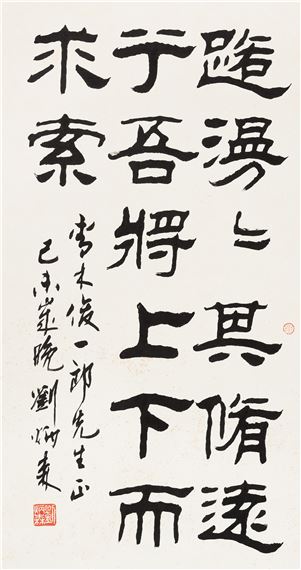 路漫〻其脩遠
兮吾將上下而
求索
青木俊一郎先生正
己未歲晚劉炳森